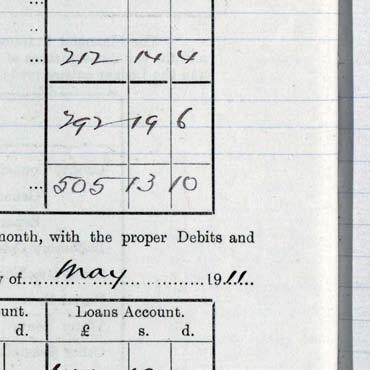 ... 212 14 4
292 19 6
... 505 13 10
month, with the proper Debits and
y of.......May.......1911....
unt. Loans Account.
d. £ s. d.